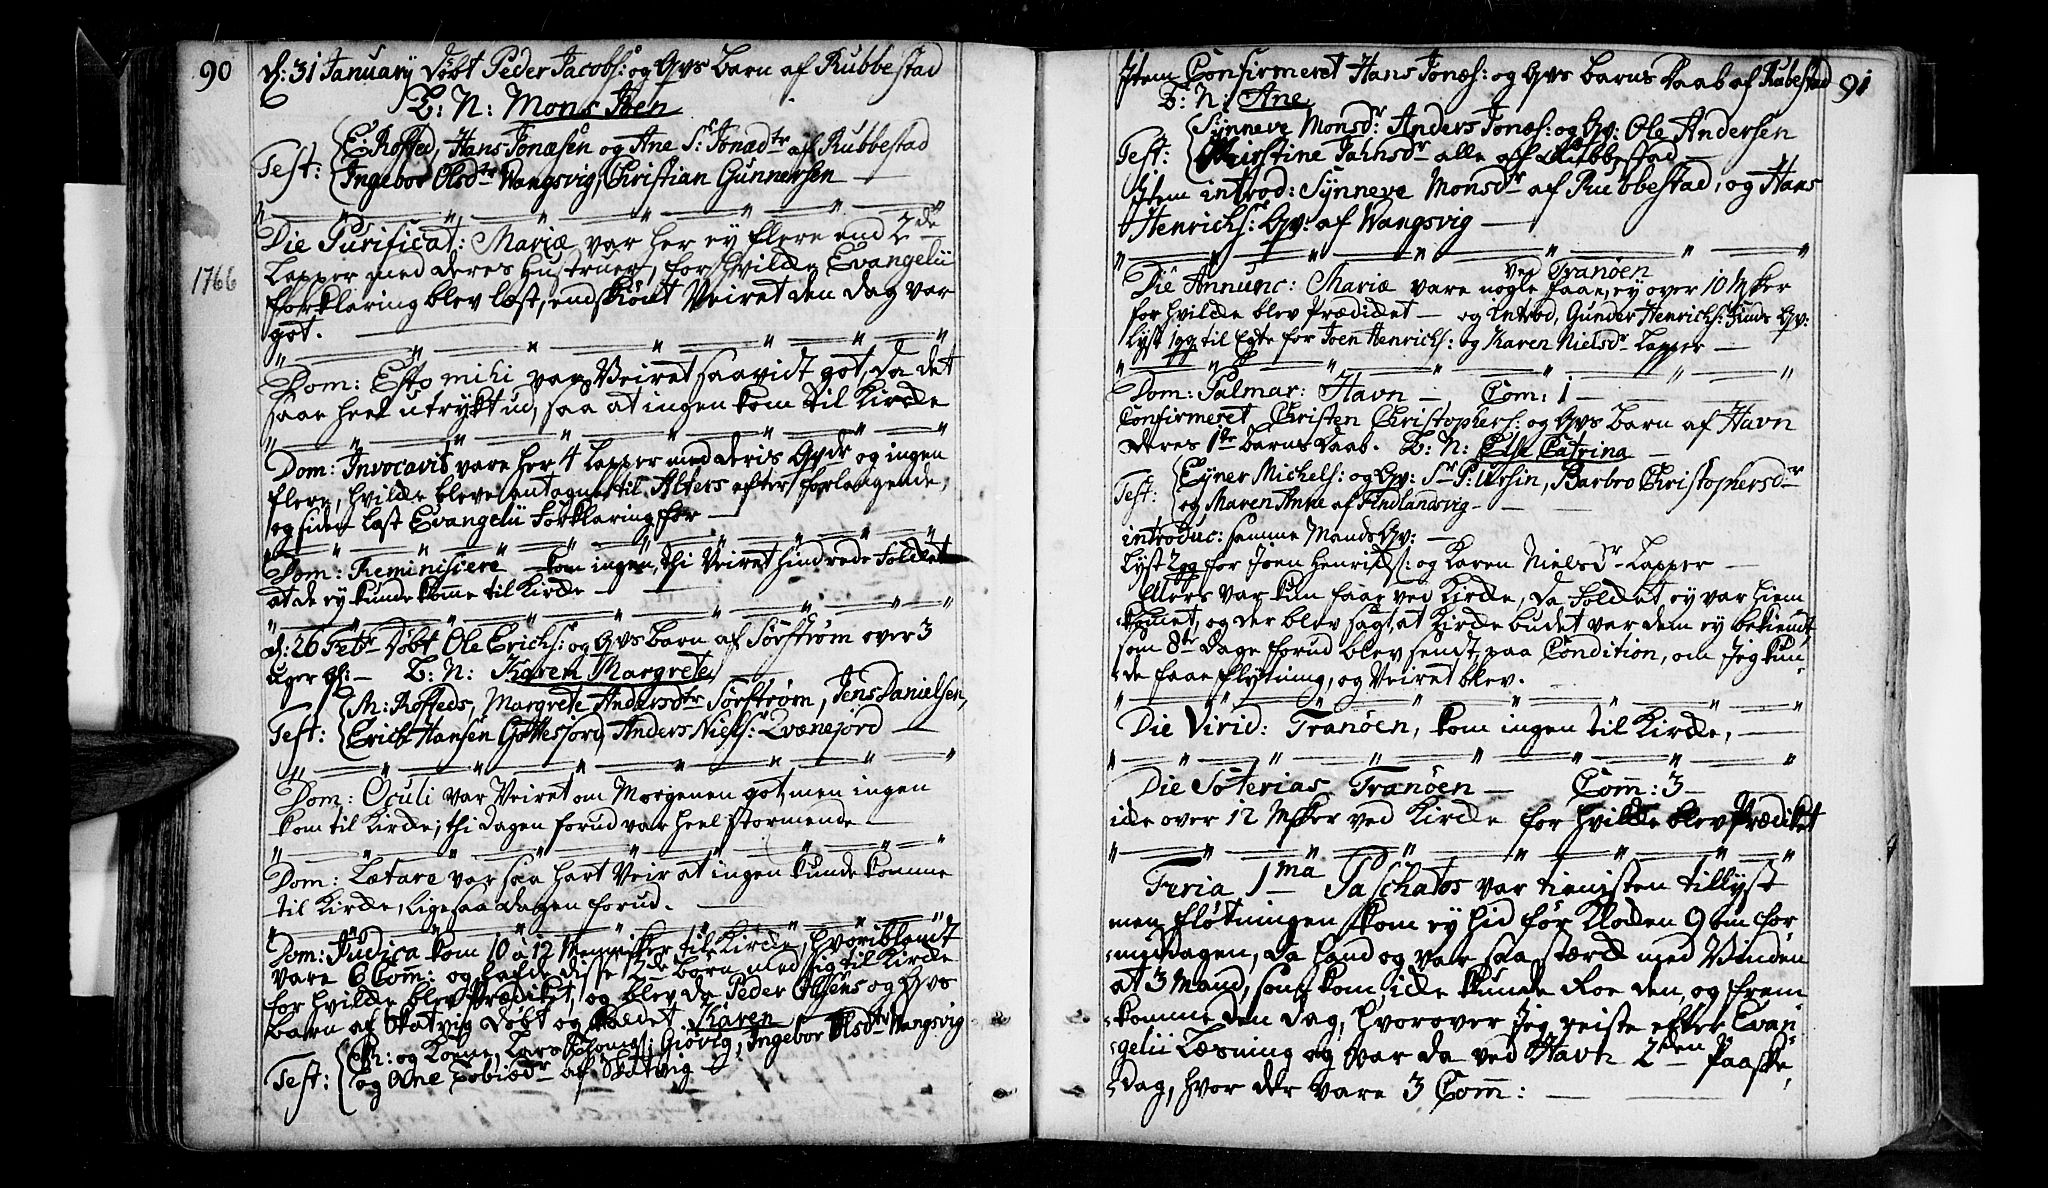 90
d: 31 January døbt Peder Jacobs: og Qvs barn af Rubbestad
B: N: Mons Joen
Test: E. Rosted, Hans Jonæsen og Ane Sl Jonædtr af Rubbestad
Ingebor Olsdtr Wangsvig, Christian Gunnersen
Die Purificat: Mariæ var her ey flere end 2de
Lapper med deres hustruer, for hvilcke Evangelii
forklaring blev læst, endskiønt Veiret den dag var
got.
1766
Dom: Esto mihi var Veiret saavidt got, da det
saae heel utrykt ud, saa at ingen kom til Kircke
Dom: Invocavit vare her 4 Lapper med deris Qvdr og ingen
flere, hvilcke bleve antagne til Alters efter forlangende,
og siden læst Evangelii Forklaring for
Dom: Reminiscere kom ingen, thi Veiret hindrede Folcket
at de ey kunde komme til Kircke
d: 26 Febr døbt Ole Erichs: og Qvs barn af Sørstrøm over 3
uger gl: B: N: Karen Margrete
Test: M: Rosteds, Margrete Andersdtr Sørstrøm, Jens Danielsen,
Erich Hansen Gottesjord, Anders Niels: Qvænejord
Dom: Oculi var Veiret om Morgenen got, men ingen
kom til Kircke; thi dagen forud var heel stormende
Dom: Lætare var saa hart Veir at ingen kunde komme
til Kircke, ligesaa dagen forud.
Dom: Judica kom 10 à 12 Mennisker til Kircke, hvoriblandt
vare 6 Com: og hafde disse 2de børn med sig til Kircke
for hvilcke blev Prædicket, og blev da Peder Olsens og Qvs
barn af Skatvig døbt og kaldet Karen
Test: M: og Kone, Lars Thomæs: Giøvig, Ingebor Olsdtr Wangsvig
og Ane Tobiædtr af Skatvig
91
Item Confirmeret Hans Jonæs: og Qvs barns daab af Rubestad
B: N: Ane
Test: Synneve Monsdr Anders Jonæs: og Qv: Ole Andersen
Kirstine Jahnsdr alle af Rubbestad
Item introd: Synneve Monsdr af Rubbestad, og Hans
Henrichs: Qv: af Wangsvig
ved Tranøen
Die Annunc: Mariæ vare nogle faae, ey over 10 Msker
for hvilcke blev Prædicket og introd, Gunder Henrichs: Finds Qv:
lyst 1gg til Egte for Joen Henrichs: og Karen Nielsdr Lapper
Dom: Palmar: Havn Com: 1
Confirmeret Christen Christophers: og Qvs barn af Havn
deres 1ste barns daab. B: N: Else Catrina
Test: Eyner Michels: og Qv: Sr P: Ursin, Barbro Christophersdr
og Maren Anne af Findlandsvig
introduc: samme Mands Qv:
Lyst 2gg for Joen Henrichs: og Karen Nielsdr Lapper
Ellers var kun faae ved Kircke, da Folcket ey var hiem
komet, og der blev sagt, at Kircke budet var dem ey bekiendt,
som 8te dage forud blev sendt paa Condition, om jeg kun-
de faae flytning, og Veiret blev.
Die Virid: Tranøen, kom ingen til Kircke,
Die Soterias Tranøen Com: 3
icke over 12 Msker ved Kircke for hvilcke blev Prædicket
Feria 1ma Paschatos var tienisten tillyst
men fløtningen kom ey hid før Klocken 9 om for
middagen, da hand og var saa stærck med Vinden
at 3 Mand, som kom, icke kunde Roe den, og frem
komme den dag, hvorover jeg reiste efter Evan-
gelii Læsning og var da ved Havn 2den Paaske
dag, hvor der vare 3 Com: